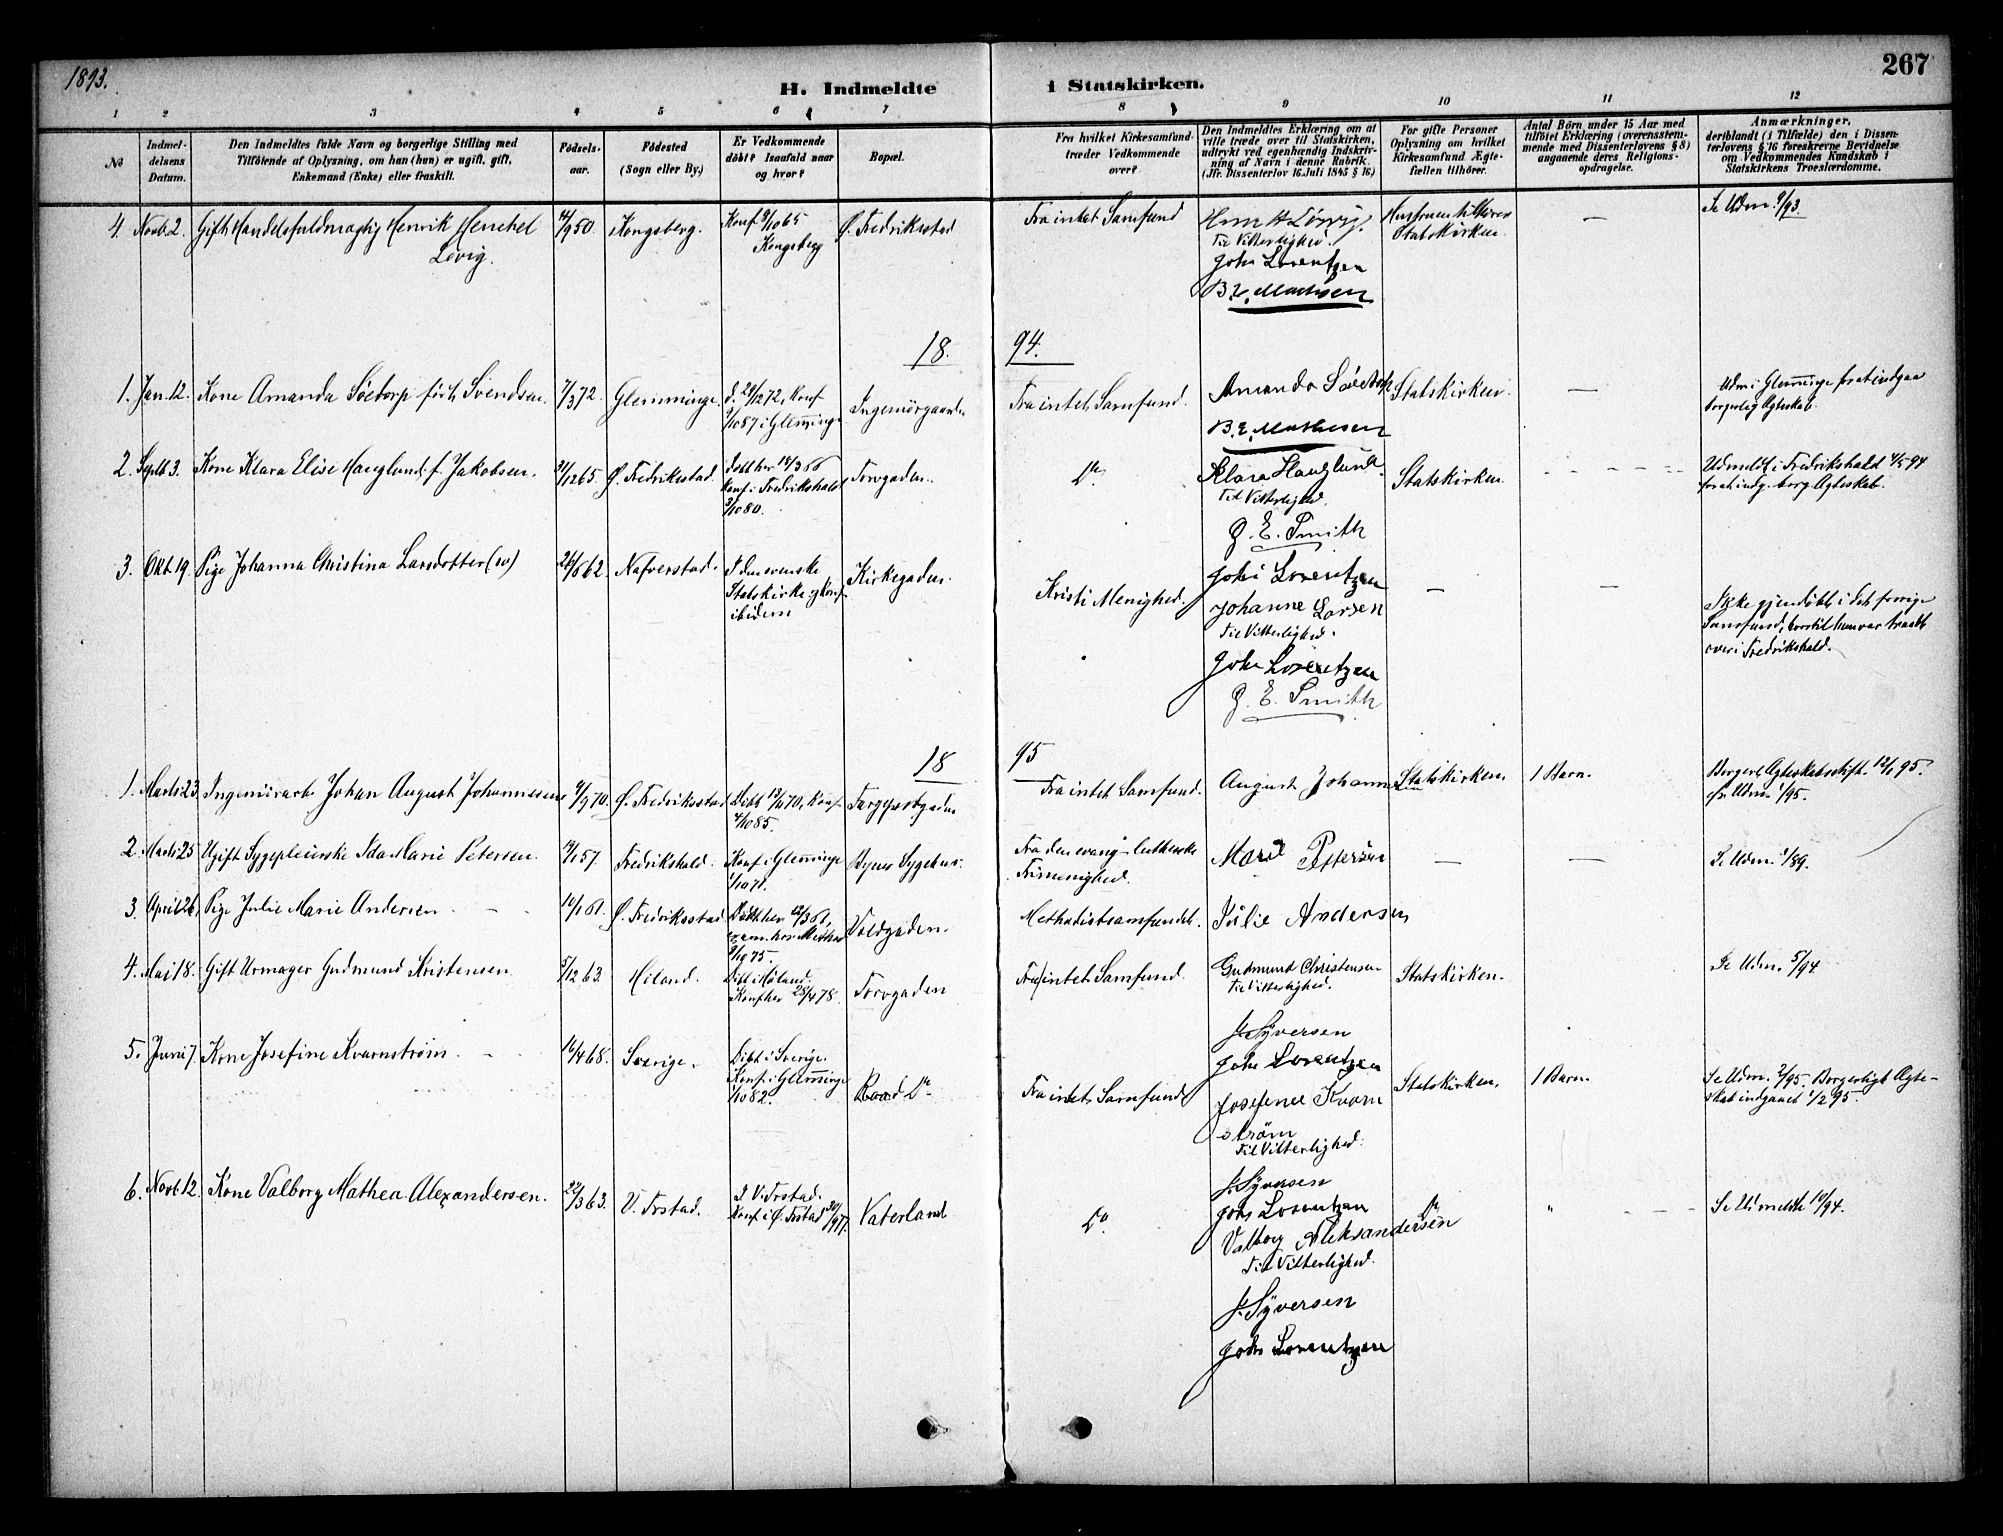 1893.
267
H. Indmeldte i Statskirken.
1 2 3 4 5 6 7 8 9 10 11 12
No
Indmel-
delsens
Datum.
Den Indmeldtes fulde Navn og borgerlige Stilling med
Tilföiende af Oplysning, om han (hun) er ugift, gift,
Enkemand (Enke) eller fraskilt.
Födsels-
aar.
Födested
(Sogn eller By.)
Er Vedkommende
döbt? Isaafald naar
og hvor?
Bopæl.
Fra hvilket Kirkesamfund-
træder Vedkommende
over?
Den Indmeldtes Erklæring om at
ville træde over til Statskirken,
udtrykt ved egenhændig Indskriv-
ning af Navn i denne Rubrik.
(Jfr. Dissenterlov 16. Juli 1845 § 16)
For gifte Personer
Oplysning om hvilket
Kirkesamfund Ægte-
fællen tilhörer.
Antal Börn under 15 Aar med
tilföiet Erklæring (overensstem-
mende med Dissenterlovens § 8)
angaaende deres Religions-
opdragelse.
Anmærkninger,
deriblandt (i Tilfælde) den i Dissen-
terlovens § 16 foreskrevne Bevidnelse
om Vedkommendes Kundskab i
Statskirkens Troeslærdomme.
4. Novb. 2. Gift Handelsfuldmægtig Henrik Henchel
Lövig.
14/9 50. Kongsberg.
Konf 8/10 65
Kongsberg
Ø. Fredriksstad
Fra intet Samfund
Til Vitterlighed.
Johs Lorentzen
B. E. Mathesen
Hustruen tilhører
Statskirken.
—
Se Udm. 9/93.
1894.
1. Jan. 12. Kone Amanda Söetorp födt Svendsen.
7/3 72. Glemminge.
d. 29/12 72, Konf
9/10 87 i Glemminge
Fra intet Samfund.
Amanda Söetorp
B. E. Mathesen
Statskirken.
—
Udm i Glemminge for at indgaa
borgerlig Ægteskab.
2. Septb 3. Kone Klara Elise Hauglund f. Jakobsen.
31/12 65. Ø. Fredriksstad.
Döbt her 18/3 66
Konf i Fredrikshald
3/10 80.
Torvgaden.
Do
Klara Hauglund.
Til Vitterlighed.
J. E. Smith
Johs Lorentzen
Statskirken.
Udmeldt i Fredrikshald 4/5 94
for at indg. borg. Ægteskab.
3. Okt 19. Pige Johanna Christina Larsdotter (sv)
26/6 62. Nafverstad.
I den svenske
Statskirke og konf.
ibidem
Kirkegaden.
Kristi Menighed.
Johanne Larsen
Til Vitterlighed.
Johs Lorentzen
J. E. Smith
—
—
Ikke gjendöbt i det forrige
Samfund, hvortil hun var traadt
over i Fredrikshald.
1895
1. Marts 23. Ingeniörarb. Johan August Johannesen
9/9 70. Ø. Fredriksstad
Döbt 13/11 70, Konf
4/10 85.
Fra intet Samfund.
August Johannesen
Statskirken.
1 Barn.
Borgerl. Ægteskab stift. 12/1 95.
cfr Udm. 1/95.
2. Marts 25 Ugift Sygepleierske Ida Marie Petersen.
14/1 57. Fredrikshald.
Konf i Glemminge
1/10 71.
Byens Sygehus.
Fra den evang-lutherske
Frimenighed.
Marie Pettersen
—
—
S. Udm. 1/89.
3. April 26. Pige Julie Marie Andersen
10/1 61. Ø. Fredriksstad
Döbt her 12/3 61,
9/10 75.
Voldgaden.
Methodistsamfundet.
Julie Andersen
4. Mai 18. Gift Urmager Gudmund Kristensen.
5/12 63. Höland.
Döbt i Höland.
Konf her 28/4 78.
Torvgaden
Fra intet Samfund.
Gudmund Christensen
Til Vitterlighed.
J. Syversen
Johs Lorentzen
Statskirken.
Se Udm. 5/94
5. Juni 7. Kone Josefine Kvarnström.
16/4 68. Sverige.
Döbt i Sverige.
Konf i Glemminge
1/10 82.
Fra intet Samfund
Josefine Kvarn
ström
Til Vitterlighed.
J. Syversen
Johs Lorentzen
Statskirken.
1 Barn.
Se Udm. 2/95. Borgerligt Ægte-
skab indgaaet 1/2 95.
6. Novb. 12. Kone Valborg Mathea Alexandersen.
22/3 63. V. Frstad.
I V. Frstad.
Konf i Ø. Frstad 30/9 77.
Vaterland
Do
Valborg Aleksandersen
Til Vitterlighed.
J. Syversen
Johs Lorentzen
Do
"
Se Udmeldte 10/94.